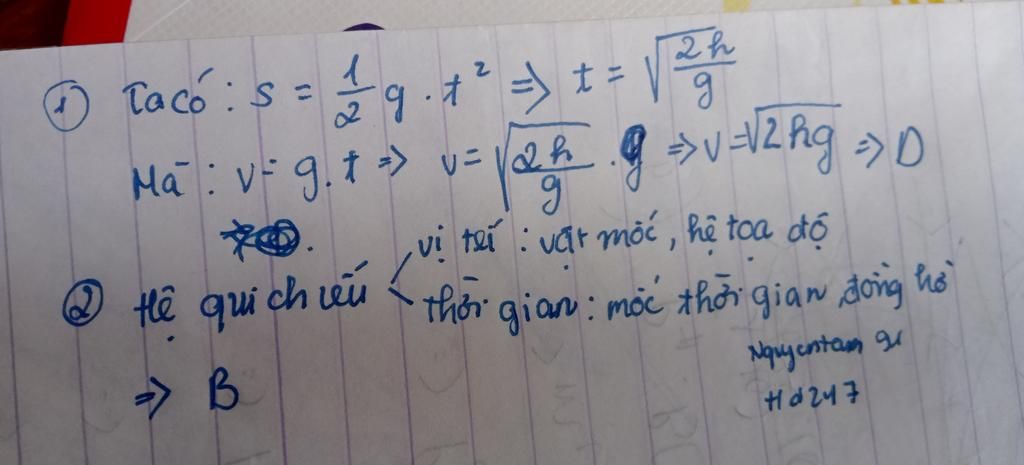 ① Ta có : s = 1/2 g . t² => t = √(2h/g)
Mà : v = g.t => v = √(2h/g) . g => v = √2hg => D
② Hệ qui chiếu
vị trí : vật mốc, hệ tọa độ
thời gian : mốc thời gian, đồng hồ
=> B
Nguyentam
Hd247